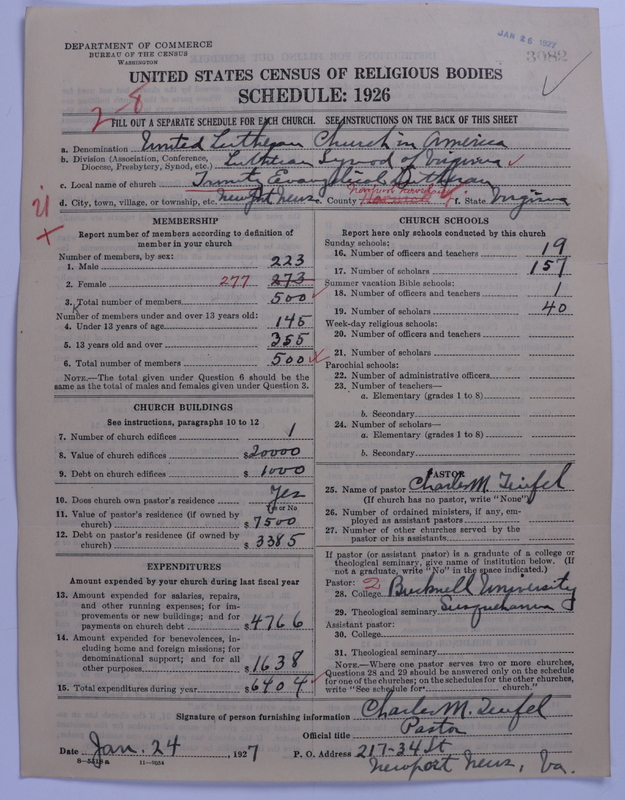 DEPARTMENT OF COMMERCE
BUREAU OF THE CENSUS
WASHINGTON
JAN 26 1927
3082
UNITED STATES CENSUS OF RELIGIOUS BODIES
SCHEDULE: 1926
2-8
FILL OUT A SEPARATE SCHEDULE FOR EACH CHURCH. SEE INSTRUCTIONS ON THE BACK OF THIS SHEET
a. Denomination United Lutheran Church in America
b. Division (Association, Conference, Diocese, Presbytery, Synod, etc.) Lutheran Synod of Virginia
c. Local name of church Trinity Evangelical Lutheran
d. City, town, village, or township, etc. Newport News e. County Warwick f. State Virginia
MEMBERSHIP
Report number of members according to definition of
member in your church
Number of members, by sex:
1. Male 223
2. Female 277 273
3. Total number of members 500
Number of members under and over 13 years old:
4. Under 13 years of age 145
5. 13 years old and over 355
6. Total number of members 500
NOTE.—The total given under Question 6 should be the
same as the total of males and females given under Question 3.
CHURCH BUILDINGS
See instructions, paragraphs 10 to 12
7. Number of church edifices 1
8. Value of church edifices $20000
9. Debt on church edifices $1000
10. Does church own pastor's residence Yes
Yes or No
11. Value of pastor's residence (if owned by
church) $7500
12. Debt on pastor's residence (if owned by
church) $3385
EXPENDITURES
Amount expended by your church during last fiscal year
13. Amount expended for salaries, repairs,
and other running expenses; for im-
provements or new buildings; and for
payments on church debt $4766
14. Amount expended for benevolences, in-
cluding home and foreign missions; for
denominational support; and for all
other purposes $1638
15. Total expenditures during year $6404
CHURCH SCHOOLS
Report here only schools conducted by this church
Sunday schools:
16. Number of officers and teachers 19
17. Number of scholars 157
Summer vacation Bible schools:
18. Number of officers and teachers 1
19. Number of scholars 40
Week-day religious schools:
20. Number of officers and teachers
21. Number of scholars
Parochial schools:
22. Number of administrative officers
23. Number of teachers—
a. Elementary (grades 1 to 8)
b. Secondary
24. Number of scholars—
a. Elementary (grades 1 to 8)
b. Secondary
PASTOR
25. Name of pastor Charles M. Teufel
(If church has no pastor, write "None")
26. Number of ordained ministers, if any, em-
ployed as assistant pastors
27. Number of other churches served by the
pastor or his assistants
If pastor (or assistant pastor) is a graduate of a college or
theological seminary, give name of institution below. (If
not a graduate, write "No" in the space indicated.)
Pastor: 2
28. College Bucknell University
29. Theological seminary Susquehanna
Assistant pastor:
30. College
31. Theological seminary
NOTE.—Where one pastor serves two or more churches,
Questions 28 and 29 should be answered only on the schedule
for one of the churches; on the schedules for the other churches,
write "See schedule for church."
Signature of person furnishing information Charles M. Teufel
Official title Pastor
Date Jan. 24, 1927 P. O. Address 217-34 St
8-5519a 11-9034 Newport News, Va.